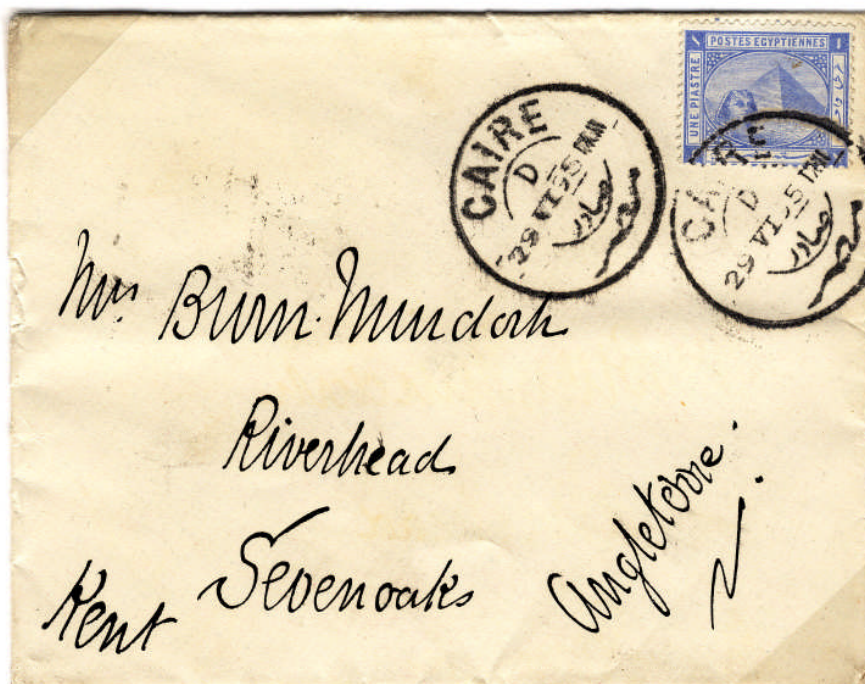 POSTES EGYPTIENNES
UNE PIASTRE
CAIRE
D
29 VI 95
صادر
مصر
CAIRE
D
29 VI 95
صادر
مصر
Mrs Burn-Murdoch
Riverhead
Sevenoaks
Kent
Angleterre.